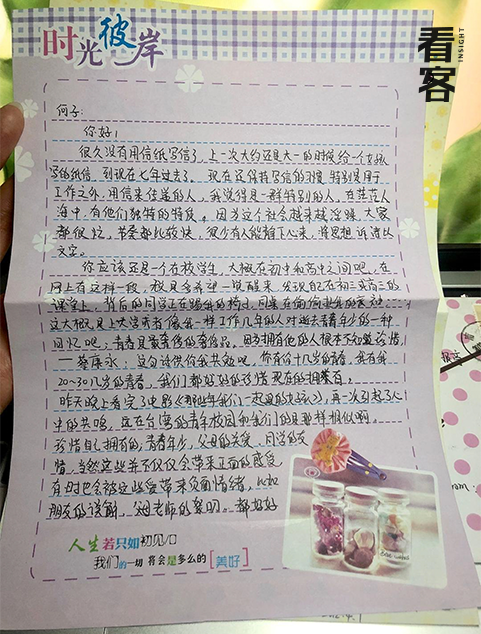 时光彼岸
看客
INSIGHT
何子:
你好!
很久没有用信纸写信了,上一次大约还是大一的时候给一个女孩
写的纸信,到现在七年过去了。现在还保持写信的习惯,特别是用于
工作之外,用信来传递的人,我觉得是一群特别的人,在茫茫人
海中,有他们独特的特质。因为这个社会越来越浮躁,大家
都很忙,节奏都比较快,很少有人能静下心来,将思想诉诸以
文字。
你应该还是一个在校学生,大概在初中和高中之间吧。在
网上有这样一段,我只希望一觉醒来,发现记在初三或高三的
课堂上,背后的同学正在踢我的椅子,同桌在偷偷
这大概是上大学或者像我一样工作几年的人对逝去青春年少的一种
回忆吧;青春是最奢侈的奢侈品,因为拥有他的人根本不知道珍惜
——蔡康永,这句话供你我共勉吧,你有你十几岁的青春,我有我
20-30几岁的青春,我们都好好的珍惜现在的拥有。
昨天晚上看完了电影《那些年我们一起追的女孩》,再一次引起了人
中的共鸣,远在台湾的青年校园和我们的是那样相似啊。
珍惜自己拥有的,青春年少,父母的关爱,同学的友
情,当然这些并不仅仅会带来正面的感受
有时也会被这些爱带来负面情绪,比如
朋友的误解,老师的责罚。都好好
人生若只如初见
我们的一切 将会是多么的[美好]